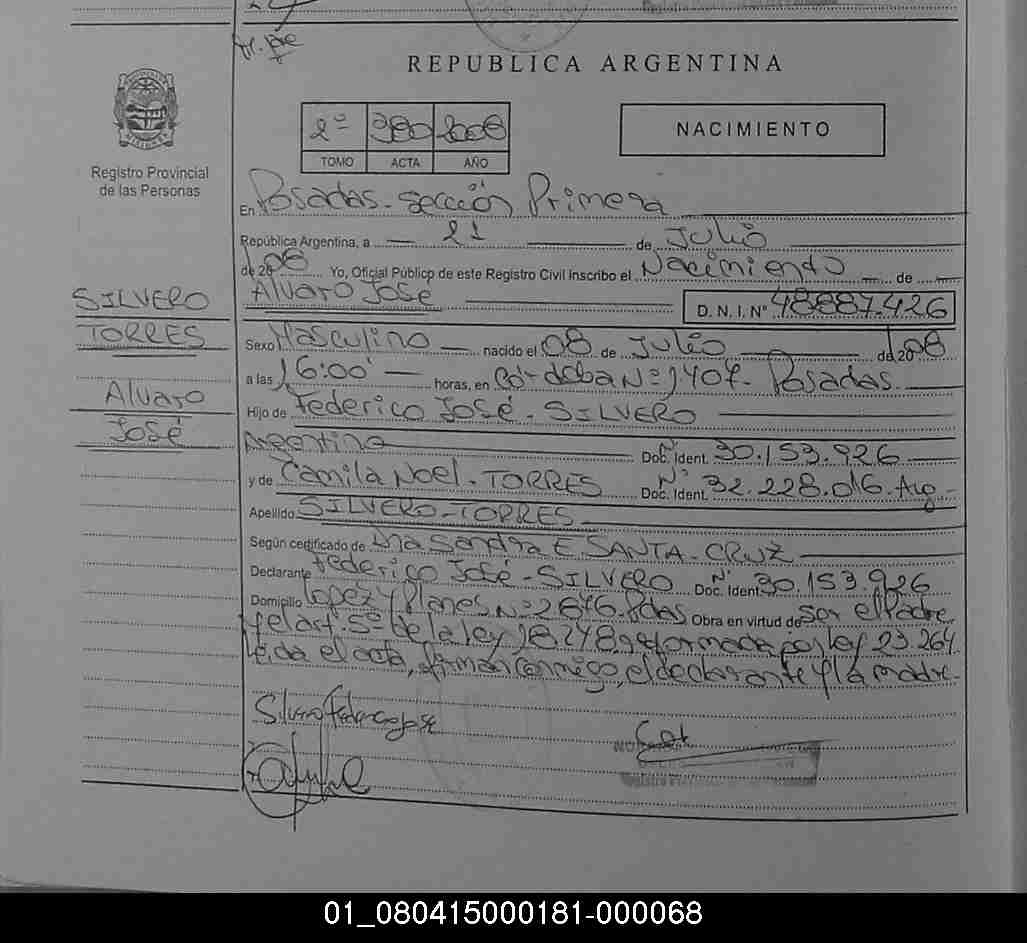 REPUBLICA ARGENTINA
Registro Provincial
de las Personas
2º 380 2008
TOMO ACTA AÑO
NACIMIENTO
En Posadas - sección Primera
República Argentina, a 21 de Julio
de 2008 Yo, Oficial Público de este Registro Civil inscribo el Nacimiento de
Alvaro José D. N. I. Nº 48887.426
SILVERO
TORRES
Alvaro
José
Sexo Masculino nacido el 08 de Julio de 2008
a las 16:00' horas, en Córdoba Nº 1407 - Posadas.
Hijo de Federico José - SILVERO
Argentino Doc. Ident. Nº 30.153.926
y de Camila Noel - TORRES Doc. Ident. Nº 32.228.016. Arg -
Apellido SILVERO-TORRES
Según certificado de Dra Sandra E. SANTA-CRUZ
Declarante Federico José - SILVERO Doc. Ident. Nº 30.153.926
Domicilio Lopez y Planes Nº 2676. Pdas Obra en virtud de ser el Padre
y el art. 5º de la ley 18.248 reformada por ley 23.264
leida el acta, firman conmigo, el declarante y la madre -
Silvero Federico jose
01_080415000181-000068